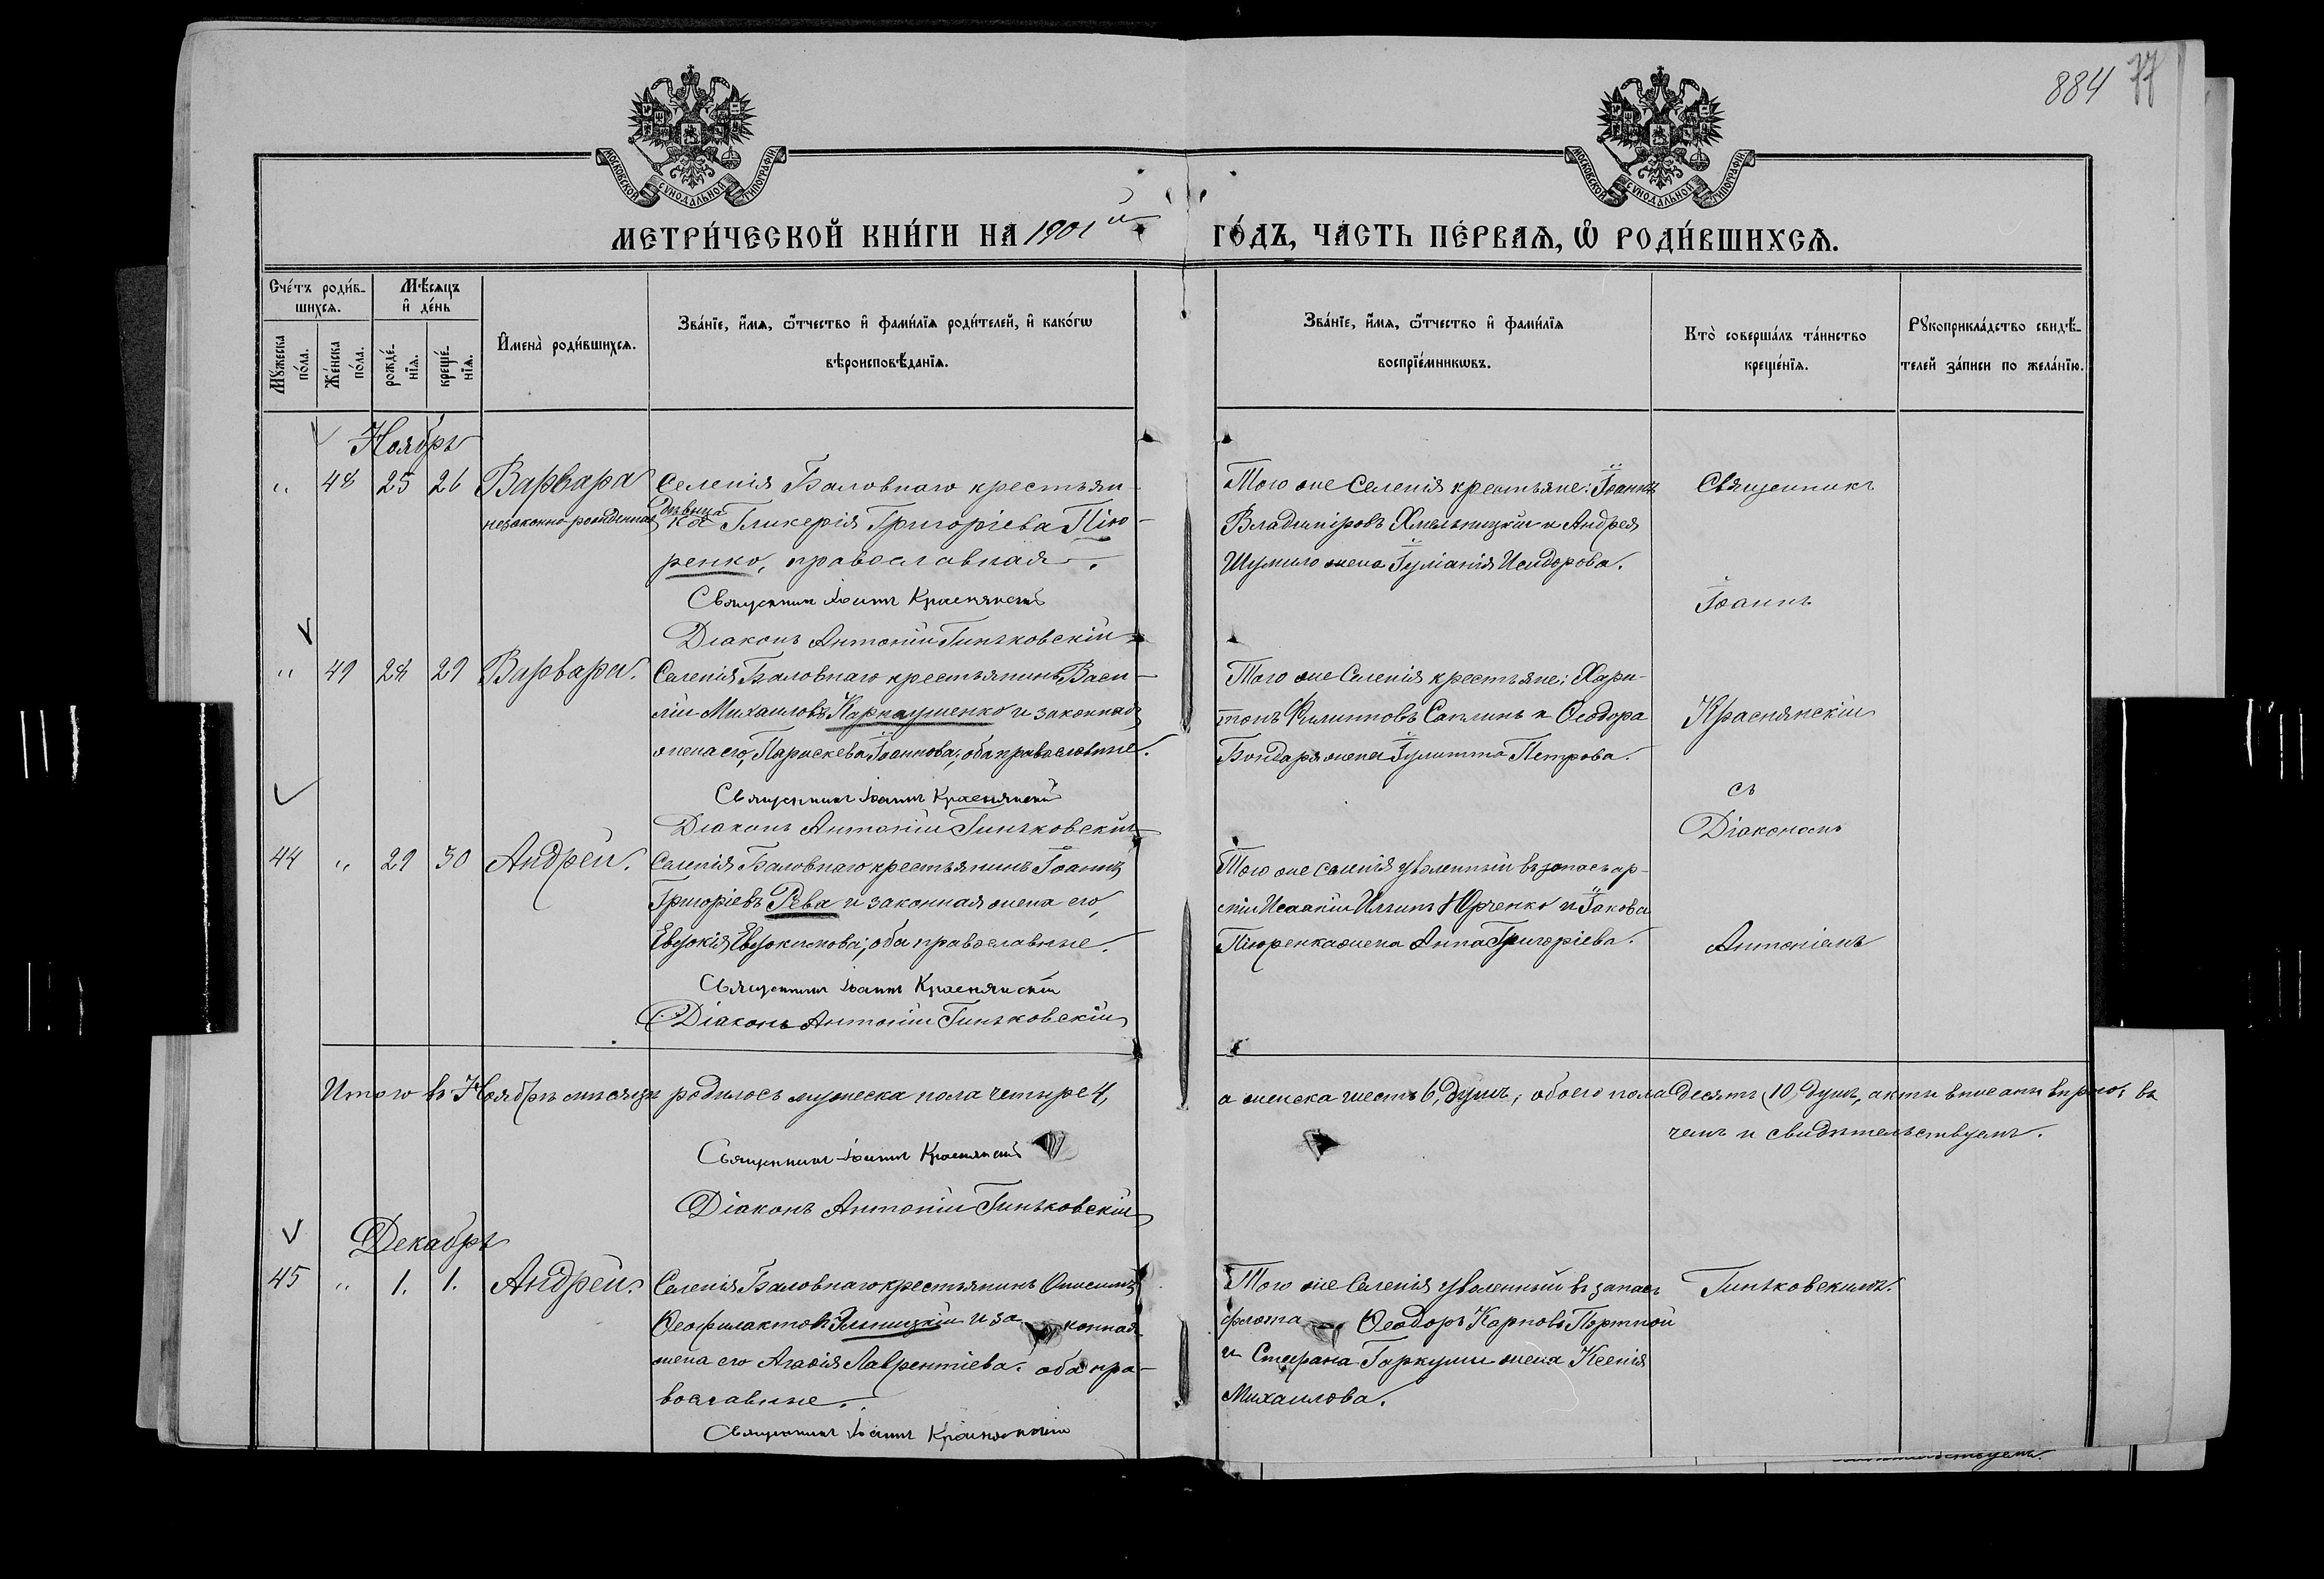 884 77
МОСКОВСКОЙ СУНОДАЛЬНОЙ ТИПОГРАФІИ
МОСКОВСКОЙ СУНОДАЛЬНОЙ ТИПОГРАФІИ
МЕТРИ́ЧЕСКОЙ КНИ́ГИ НА 1901й ГО́ДЪ, ЧА́СТЬ ПЕ́РВАѦ, Ѡ РОДИ́ВШИХСѦ.
Сче́тъ роди́в-
шихсѧ.
Мꙋ́жеска по́ла.
Же́нска по́ла.
Мѣ́сѧцъ и де́нь
рожде́-нїѧ.
креще́-нїѧ.
Имена̀ роди́вшихсѧ.
Зва́нїе, и́мѧ, ѻ҆́тчество и фами́лїѧ роди́телей, и како́гѡ
вѣроисповѣ́данїѧ.
Зва́нїе, и́мѧ, ѻ҆́тчество и фами́лїѧ
воспрїе́мникѡвъ.
Кто̀ соверша́лъ та́инство
креще́нїѧ.
Рꙋкоприкла́дство свидѣ́-
телей за́писи по жела́нїю.
Ноябрь
" 48 25 26 Варвара Селенія Баловнаго крестьян-
незаконно-рожденная
дѣвица
ка Гликерія Григоріева Пію-
ренко, православная.
Священникъ Іоаннъ Краснянскій
Діаконъ Антоній Гиньковскій
Того же Селенія крестьяне: Іоаннъ
Владиміровъ Хмельницкій и Андрея
Шумило жена Іуліанія Исидорова.
Священникъ
Іоаннъ
" 49 28 29 Варвара. Селенія Баловнаго крестьянинъ Васи-
лій Михаиловъ Карнаушенко и законная
жена его, Параскева Іоаннова; оба православные.
Священникъ Іоаннъ Краснянскій
Діаконъ Антоній Гиньковскій
Того же Селенія крестьяне: Хари-
тонъ Филипповъ и Ѳеодора
Бондаря жена Іулитта Петрова.
Краснянскій
съ
Діакономъ
44 " 29 30 Андрей. Селенія Баловнаго крестьянинъ Іоаннъ
Григоріевъ Рева и законная жена его,
Евдокія Евдокимова; оба православные.
Священникъ Іоаннъ Краснянскій
Діаконъ Антоній Гиньковскій
Того же селенія уволенный въ запасъ ар-
міи Исаакій Ильинъ Юрченко и Іакова
Піюренка жена Анна Григоріева.
Антоніемъ
Итого въ Ноябрѣ мѣсяцѣ родилось мужеска пола четыре 4, а женска шесть 6, душъ; обоего пола десять (10) душъ, акты вписаны вѣрно; въ
чемъ и свидѣтельствуемъ.
Священникъ Іоаннъ Краснянскій
Діаконъ Антоній Гиньковскій
Декабрь
45 " 1. 1. Андрей. Селенія Баловнаго крестьянинъ Онисимъ
Ѳеофилактовъ и за конная
жена его Агафія Лаврентіева. оба пра-
вославные.
Священникъ Іоаннъ Краснянскій
Того же Селенія уволенный въ запасъ
флота Ѳеодоръ Карповъ Портной
и Стефана Гаркуши жена Ксенія
Михаилова.
Гиньковскимъ.